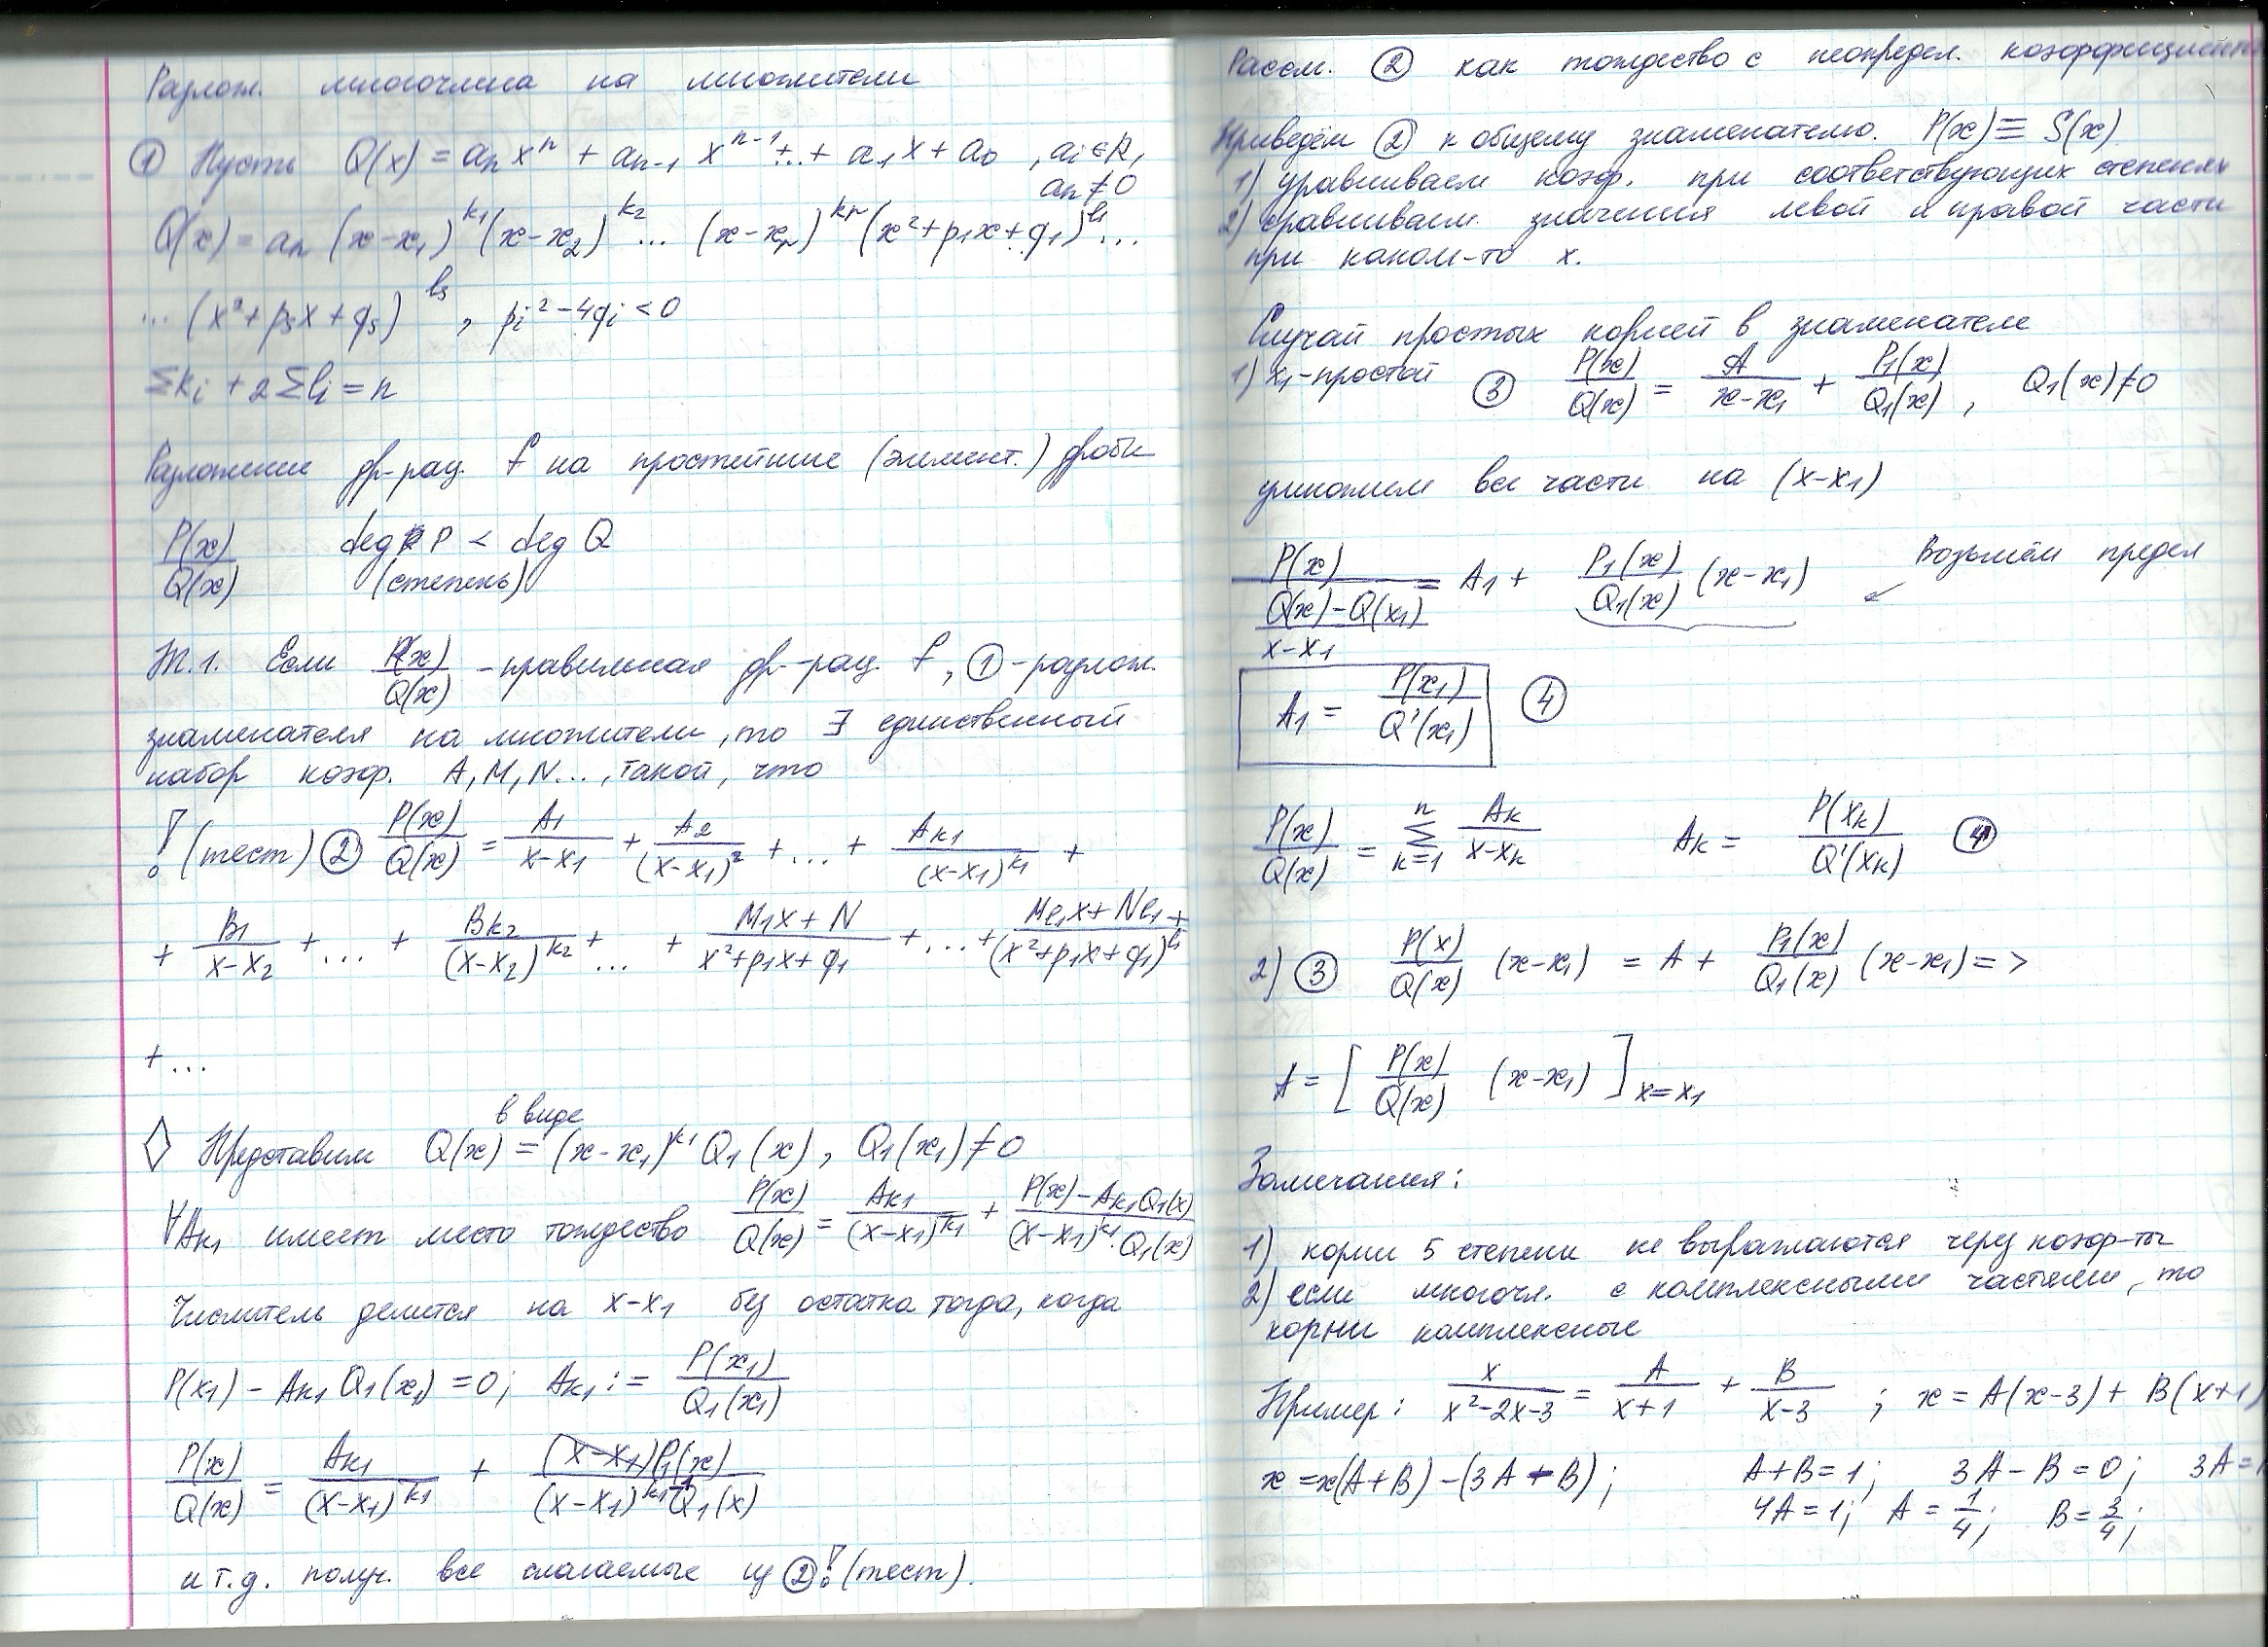 Разлож. многочлена на множители
① Пусть Q(x) = aₙxⁿ + aₙ₋₁ xⁿ⁻¹ + ... + a₁x + a₀ , aᵢ ∈ R,
aₙ ≠ 0
Q(x) = aₙ (x-x₁)^k₁ (x-x₂)^k₂ ... (x-xᵣ)^kᵣ (x²+p₁x+q₁)^l₁ ...
... (x²+pₛx+qₛ)^lₛ , pᵢ²-4qᵢ < 0
Σkᵢ + 2Σlᵢ = n
Разложение др-рац. f на простейшие (элемент.) дроби
P(x)/Q(x) deg P < deg Q
(степень)
Т.1. Если P(x)/Q(x) - правильная др-рац. f , ① - разлож.
знаменателя на множители, то ∃ единственный
набор коэф. A, M, N..., такой, что
! (тест) ② P(x)/Q(x) = A₁/(x-x₁) + A₂/(x-x₁)² + ... + A_k₁/(x-x₁)^k₁ +
+ B₁/(x-x₂) + ... + B_k₂/(x-x₂)^k₂ + ... + (M₁x+N)/(x²+p₁x+q₁) + ... + (M_l₁x+N_l₁)/(x²+p₁x+q₁)^l₁ +
+ ...
◊ Представим в виде Q(x) = (x-x₁)^k₁ Q₁(x), Q₁(x₁) ≠ 0
∀A_k₁ имеет место тождество P(x)/Q(x) = A_k₁/(x-x₁)^k₁ + (P(x)-A_k₁Q₁(x))/((x-x₁)^k₁·Q₁(x))
Числитель делится на x-x₁ без остатка тогда, когда
P(x₁) - A_k₁ Q₁(x₁) = 0; A_k₁ := P(x₁)/Q₁(x₁)
P(x)/Q(x) = A_k₁/(x-x₁)^k₁ + (x-x₁)P₁(x)/((x-x₁)^(k₁-1) Q₁(x))
и т.д. получ. все слагаемые из ②! (тест).
Рассм. ② как тождество с неопредел. коэффициент
Приведём ② к общему знаменателю. P(x) ≡ S(x)
1) уравниваем коэф. при соответствующих степенях
2) сравниваем значения левой и правой части
при каком-то x.
Случай простых корней в знаменателе
1) x₁-простой ③ P(x)/Q(x) = A/(x-x₁) + P₁(x)/Q₁(x) , Q₁(x) ≠ 0
умножим все части на (x-x₁)
P(x)/((Q(x)-Q(x₁))/(x-x₁)) = A₁ + P₁(x)/Q₁(x) (x-x₁) Возьмём предел
A₁ = P(x₁)/Q'(x₁) ④
P(x)/Q(x) = Σ_{k=1}^{n} A_k/(x-x_k) A_k = P(x_k)/Q'(x_k) ④
2) ③ P(x)/Q(x) (x-x₁) = A + P₁(x)/Q₁(x) (x-x₁) =>
A = [ P(x)/Q(x) (x-x₁) ]_{x=x₁}
Замечания:
1) корни 5 степени не выражаются через коэф-ты
2) если многочл. с комплексными частями, то
корни комплексные
Пример: x/(x²-2x-3) = A/(x+1) + B/(x-3) ; x = A(x-3) + B(x+1)
x = x(A+B) - (3A - B); A+B = 1; 3A - B = 0; 3A =
4A = 1; A = 1/4; B = 3/4;